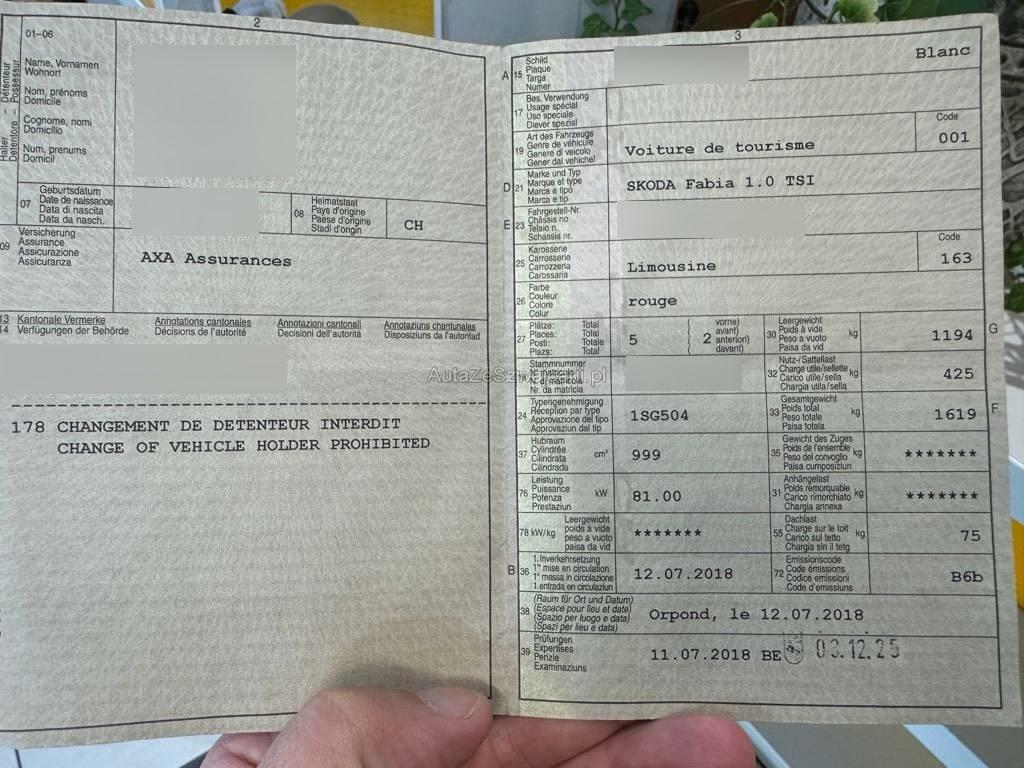 2
01-06
Halter - Détenteur
Detentore - Possessur
Name, Vornamen
Wohnort
Nom, prénoms
Domicile
Cognome, nomi
Domicilio
Num, prenums
Domicil
07
Geburtsdatum
Date de naissance
Data di nascita
Data da nasch.
08
Heimatstaat
Pays d'origine
Paese d'origine
Stadi d'origin
CH
09
Versicherung
Assurance
Assicurazione
Assicuranza
AXA Assurances
13 Kantonale Vermerke Annotations cantonales Annotazioni cantonali Annotaziuns chantunales
14 Verfügungen der Behörde Décisions de l'autorité Decisioni dell'autorità Disposiziuns da l'autoritad
178 CHANGEMENT DE DETENTEUR INTERDIT
CHANGE OF VEHICLE HOLDER PROHIBITED
3
A 15
Schild
Plaque
Targa
Numer
Blanc
17
Bes. Verwendung
Usage spécial
Uso speciale
Diever spezial
19
Art des Fahrzeugs
Genre de véhicule
Genere di veicolo
Gener dal vehichel
Voiture de tourisme
Code
001
D 21
Marke und Typ
Marque et type
Marca e tipo
Marca e tip
SKODA Fabia 1.0 TSI
E 23
Fahrgestell-Nr.
Châssis no
Telaio n.
Schassis nr.
25
Karosserie
Carrosserie
Carrozzeria
Carossaria
Limousine
Code
163
26
Farbe
Couleur
Colore
Colur
rouge
27
Plätze: Total
Places: Total
Posti: Totale
Plazs: Total
5
2
vorne)
avant)
anteriori)
davant)
30
Leergewicht
Poids à vide
Peso a vuoto
Paisa da vid
kg
1194
G
Stammnummer
N. matricule
N. di matricola
Nr. da matricla
32
Nutz-/Sattellast
Charge utile/sellette
Carico utile/sella
Chargia utila/sella
kg
425
24
Typengenehmigung
Réception par type
Approvazione del tipo
Approvaziun dal tip
1SG504
33
Gesamtgewicht
Poids total
Peso totale
Paisa totala
kg
1619
F
37
Hubraum
Cylindrée
Cilindrata
Cilindrada
cm³
999
35
Gewicht des Zuges
Poids de l'ensemble
Peso del convoglio
Paisa cumposiziun
kg
*******
76
Leistung
Puissance
Potenza
Prestaziun
kW
81.00
31
Anhängelast
Poids remorquable
Carico rimorchiato
Chargia annexa
kg
*******
78 kW/kg
Leergewicht
poids à vide
peso a vuoto
paisa da vid
*******
55
Dachlast
Charge sur le toit
Carico sul tetto
Chargia sin il tetg
kg
75
B 36
1. Inverkehrsetzung
1re mise en circulation
1a messa in circolazione
1. entrada en circulaziun
12.07.2018
72
Emissionscode
Code émissions
Codice emissioni
Code d'emissiuns
B6b
38
(Raum für Ort und Datum)
(Espace pour lieu et date)
(Spazio per luogo e data)
(Spazi per lieu e data)
Orpond, le 12.07.2018
39
Prüfungen
Expertises
Perizie
Examinaziuns
11.07.2018 BE
03.12.25
AutaZeSzwajcarii.pl